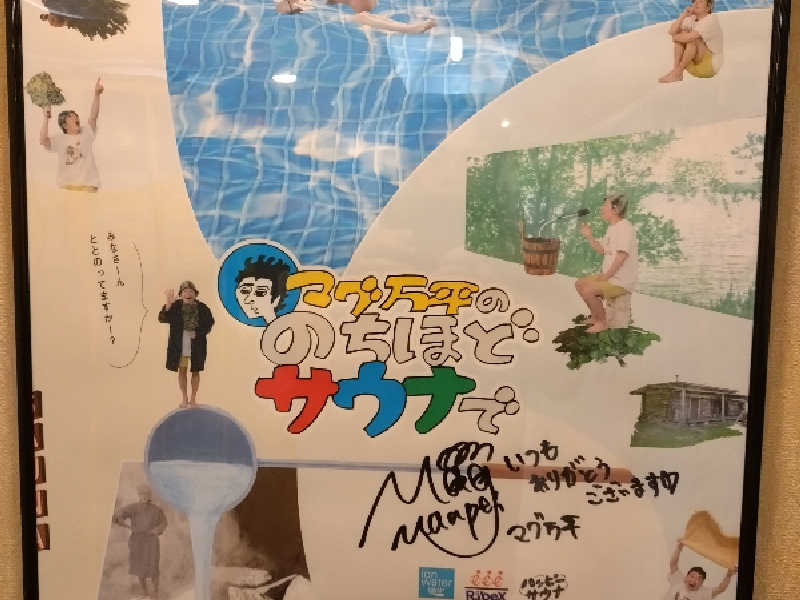 みなさーん
ととのってますかー?
マグ万平の
のちほど
サウナで
Mag
Manpei
いつも
ありがとう
ございます
マグ万平
ion
water
Ribex
ハッピー
サウナ